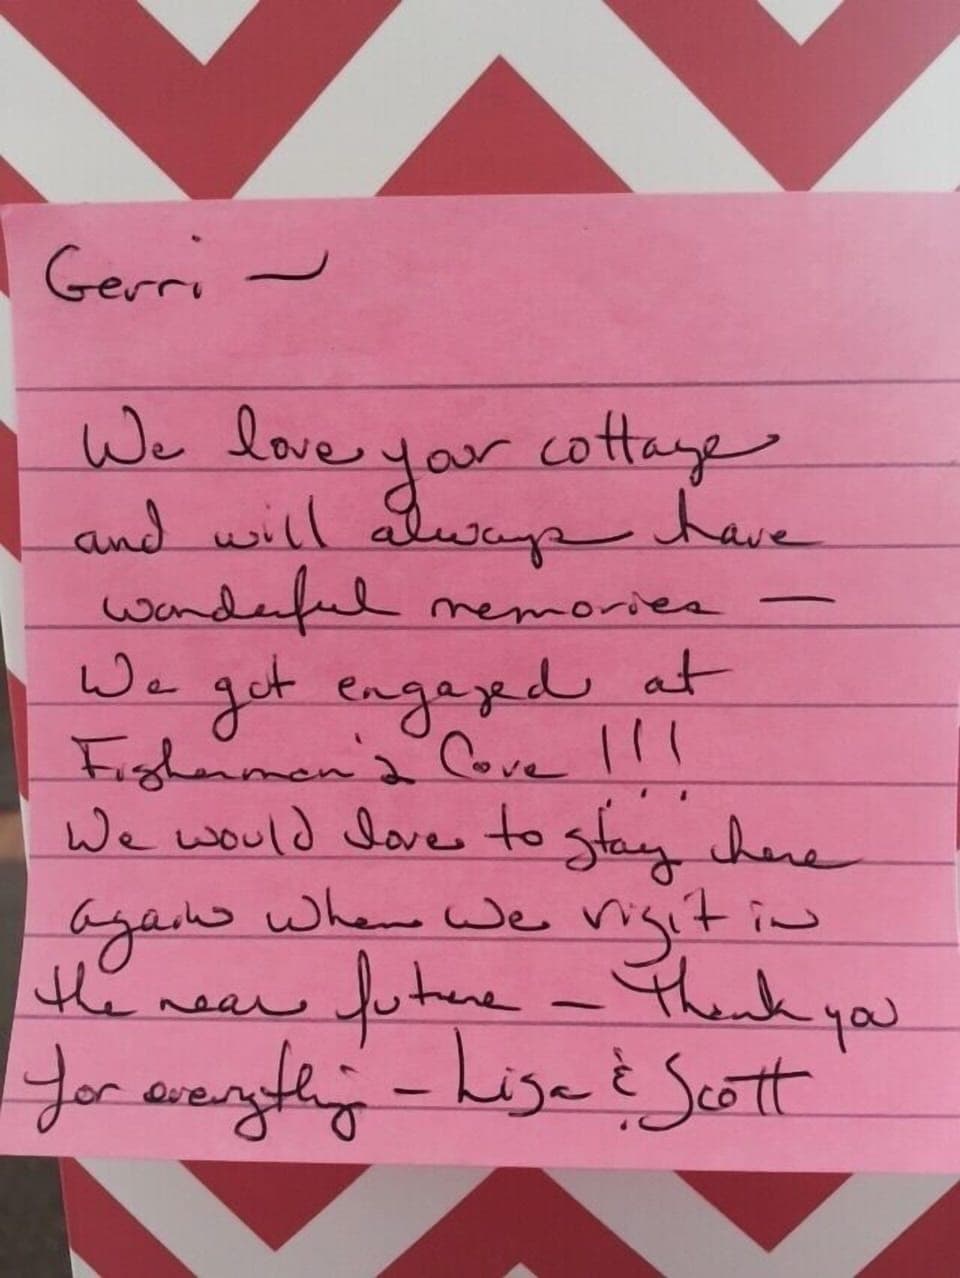 Gerri —
We love your cottage
and will always have
wonderful memories —
We got engaged at
Fisherman's Cove !!!
We would love to stay here
again when we visit in
the near future — Thank you
for everything — Lisa & Scott